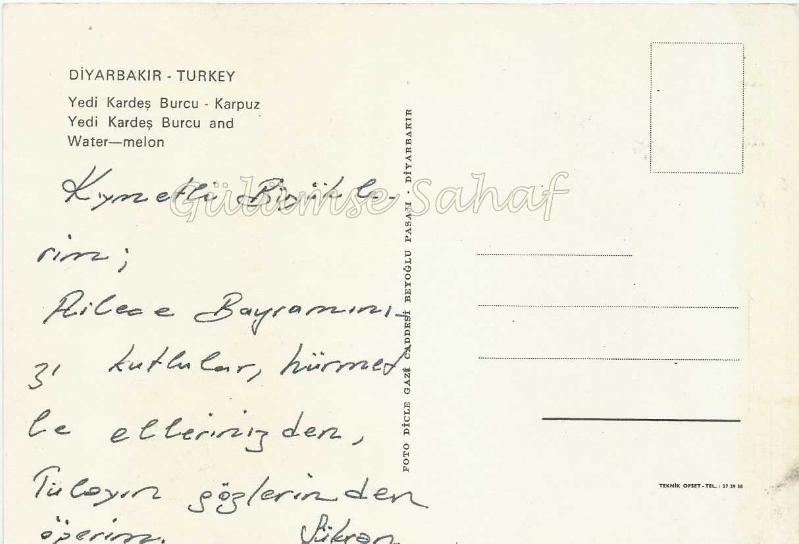 DİYARBAKIR - TURKEY
Yedi Kardeş Burcu - Karpuz
Yedi Kardeş Burcu and
Water—melon
Kıymetli Büyükle-
rim;
Ailece Bayramını-
zı kutlular, hürmet
le ellerinizden,
Tülayın gözlerinden
öperim. Şükran
Gülümse Sahaf
FOTO DİCLE GAZİ CADDESİ BEYOĞLU PASAJI - DİYARBAKIR
TEKNİK OFSET-TEL.: 27 29 58